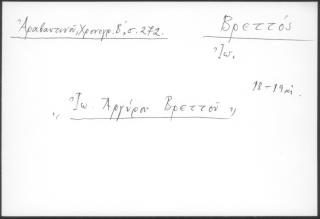 Ἀραβαντινοῦ, Χρονογρ. Β', σ. 272.
Βρεττός
Ἰω.
18-19 αἰ.
"Ἰω. Ἀργύρη Βρεττοῦ"